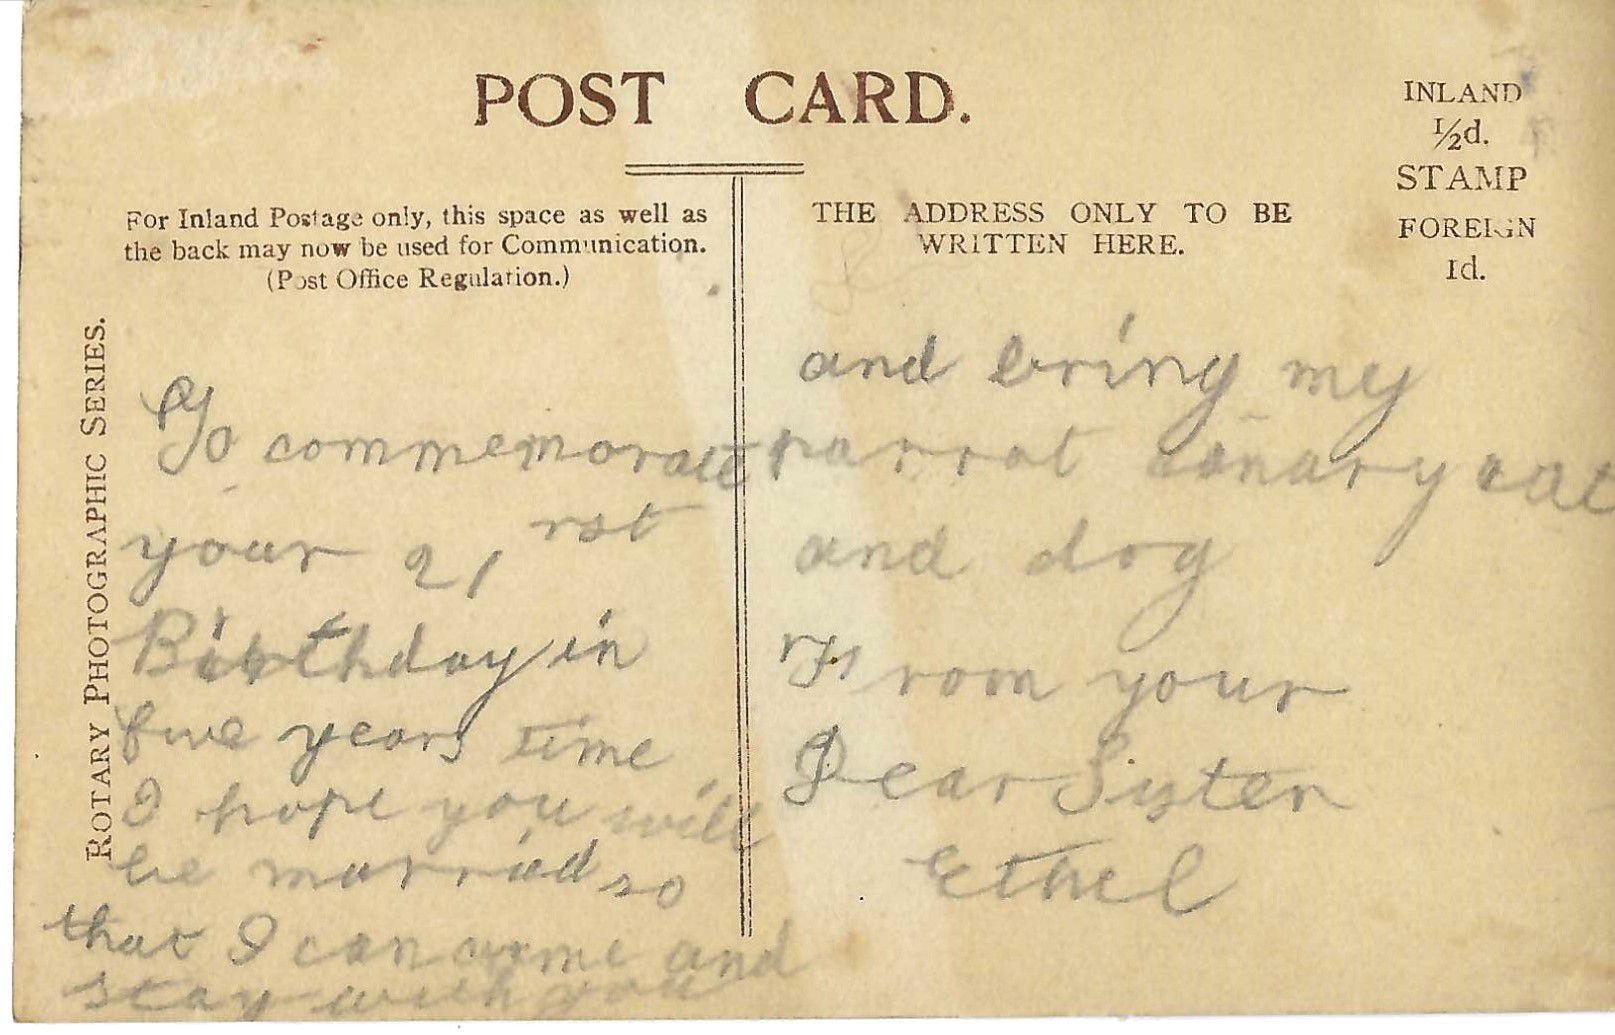 POST CARD.
INLAND
½d.
STAMP
FOREIGN
1d.
For Inland Postage only, this space as well as
the back may now be used for Communication.
(Post Office Regulation.)
THE ADDRESS ONLY TO BE
WRITTEN HERE.
ROTARY PHOTOGRAPHIC SERIES.
To commemorate
your 21rst
Birthday in
five years time
I hope you will
be married so
that I can come and
stay with you
and bring my
parrot canary cat
and dog
From your
Dear Sister
Ethel